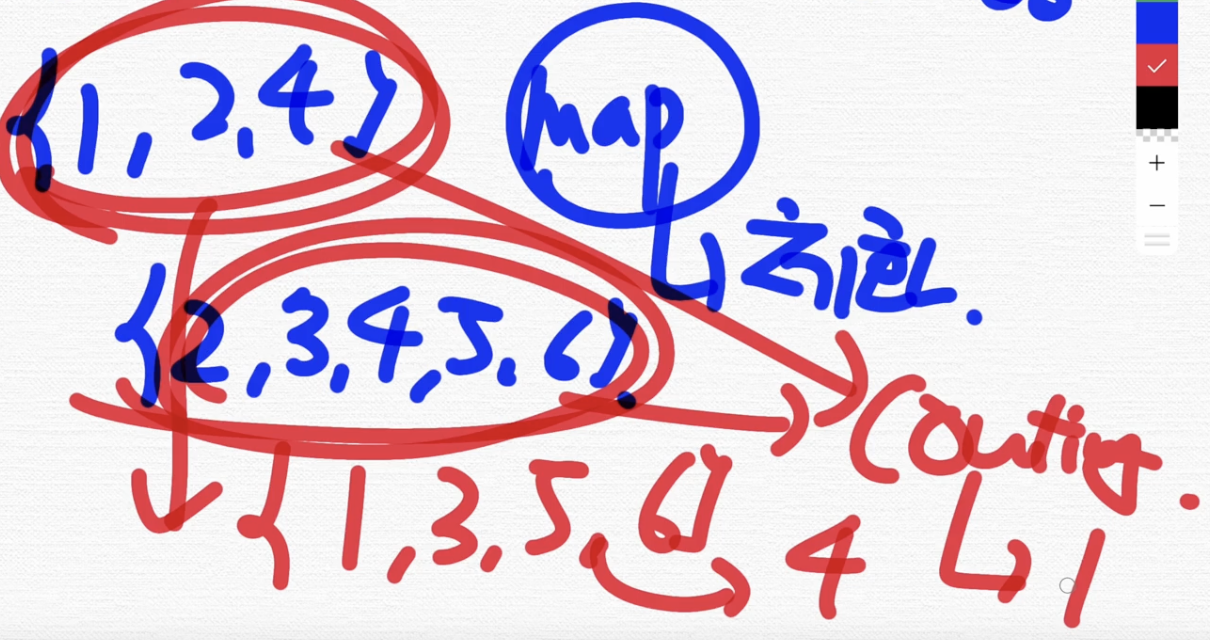 {1, 2, 4}
map
{2, 3, 4, 5, 6}
Couting.
{1, 3, 5, 6}
4
1